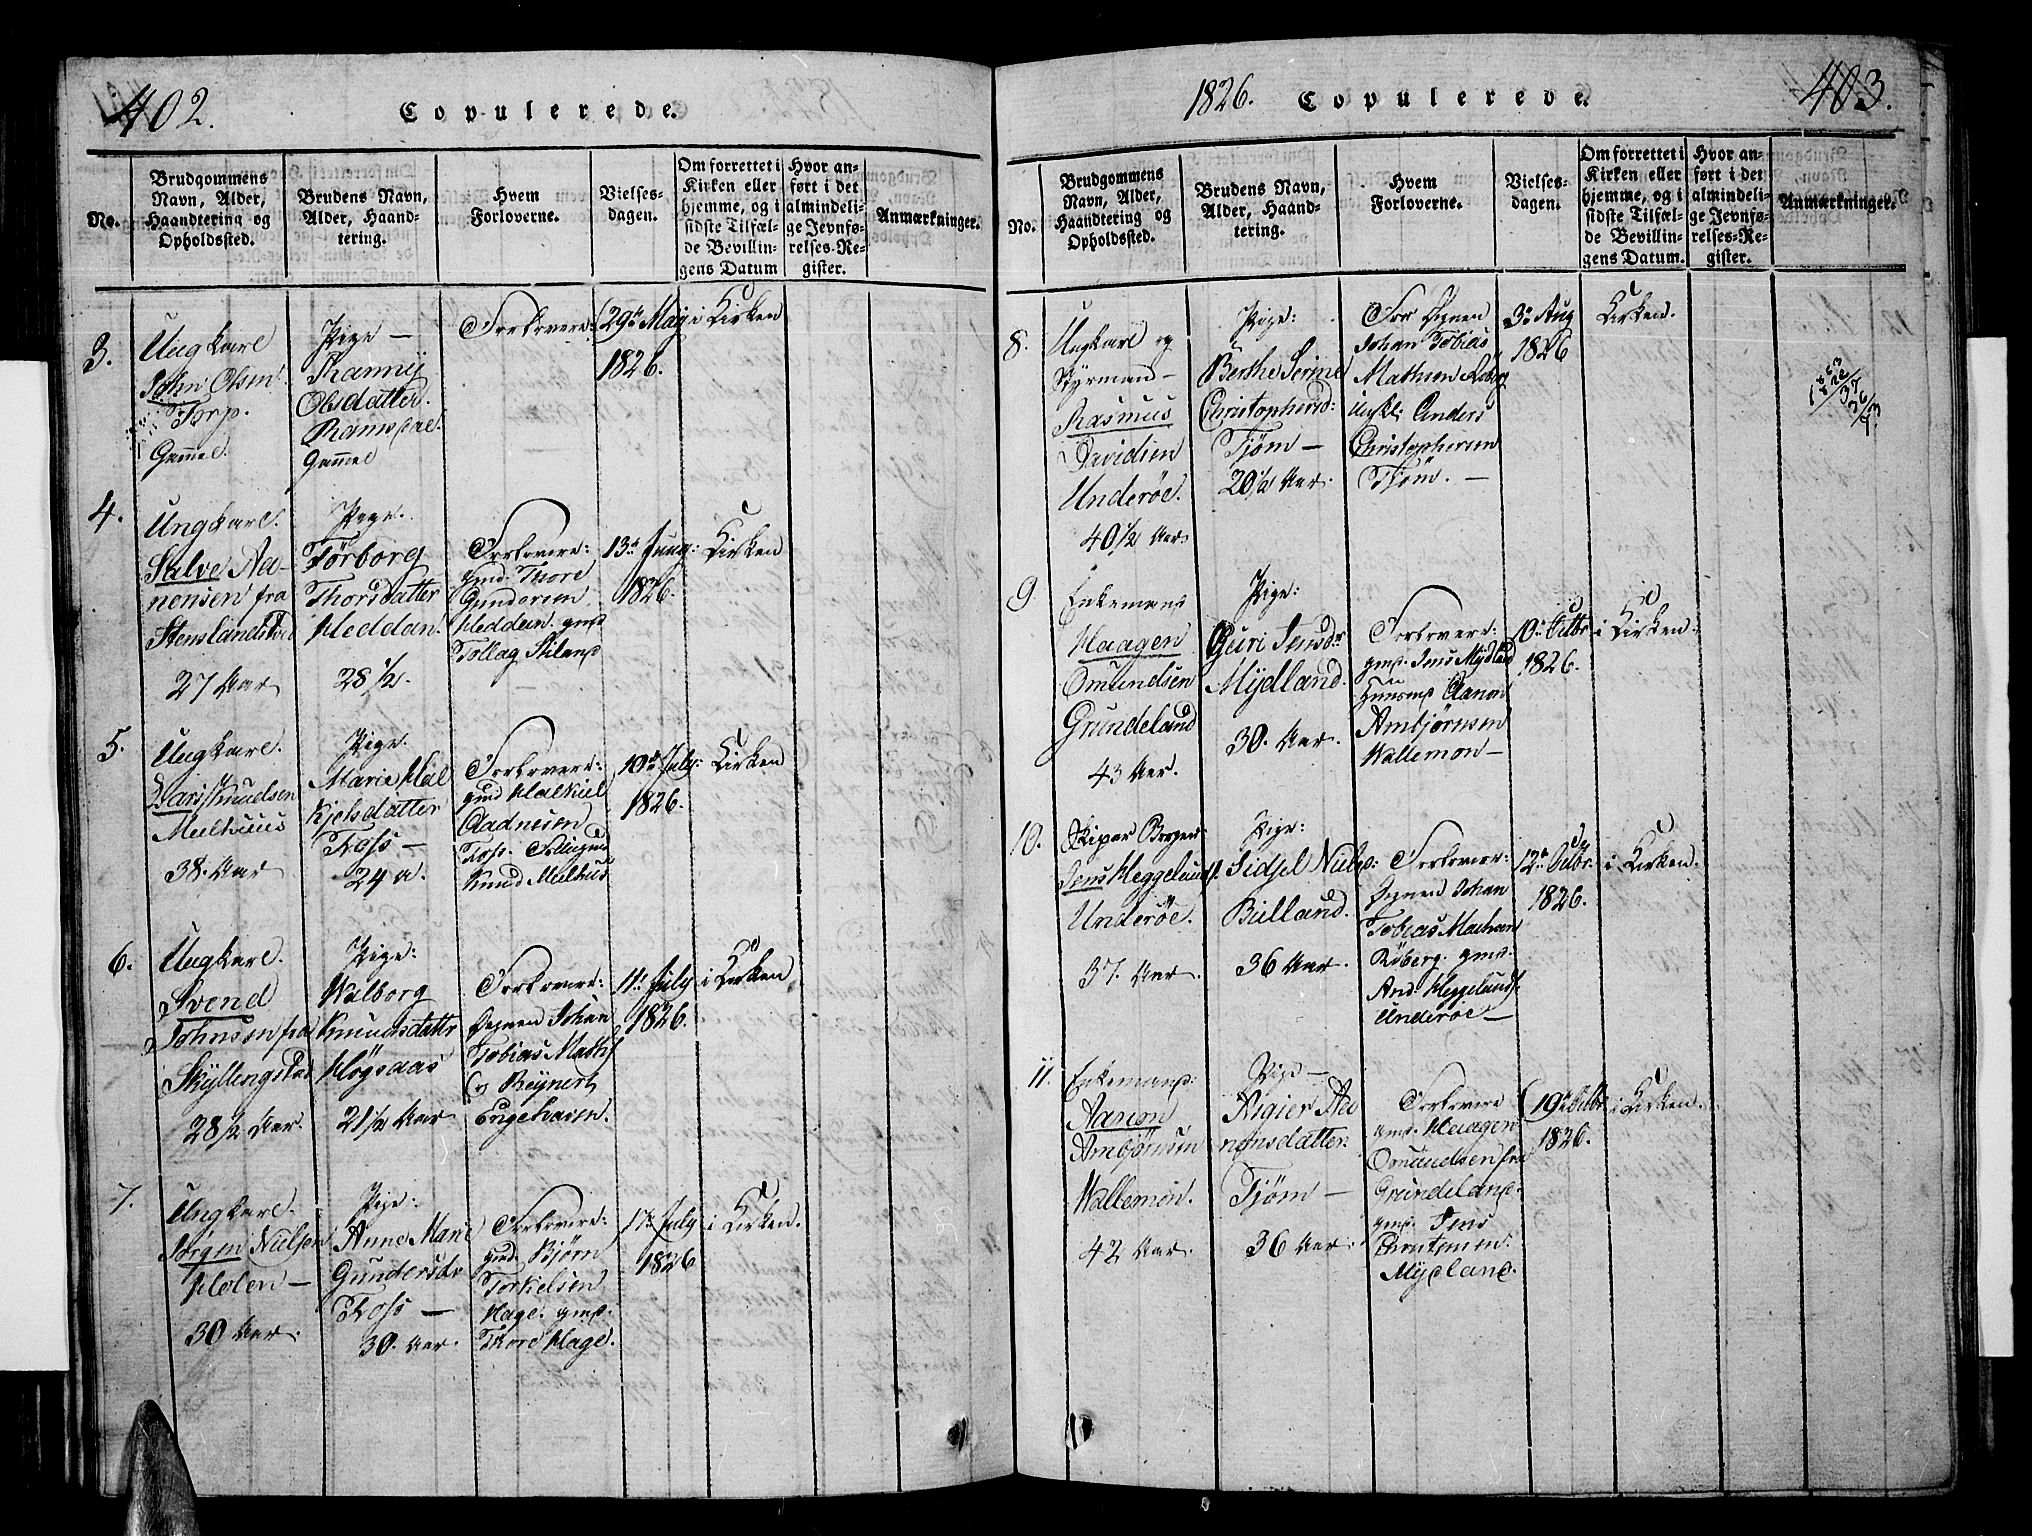 402.
Copulerede.
No.
Brudgommens
Navn, Alder,
Haandtering og
Opholdssted.
Brudens Navn,
Alder, Haand-
tering.
Hvem
Forloverne.
Vielses-
dagen.
Om forrettet i
Kirken eller
hjemme, og i
sidste Tilfæl-
de Bevillin-
gens Datum
Hvor an-
ført i det
almindeli-
ge Jevnfø-
relses-Re-
gister.
Anmærkninger.
3.
Ungkarl
John Olsen
Torp.
Gammel
Pige —
Rannij
Olsdatter.
Ramsdal
Gammel
Forlovere:
29de Maij
1826.
i Kirken
4.
Ungkarl.
Salve Aa-
nensen fra
27 Aar
Pige.
Törborg
Thorsdatter
Heddan.
28 1/2.
Forlovere:
gmd. Thore
Gundersen
Heddan. gmd
Tollag
13de Juny
1826.
i Kirken
5.
Ungkarl.
Lars Knudsen
Mulhuus
38. Aar
Pige.
Marie Hal
kjelsdatter
Foss —
24 a.
Forlovere:
gmd Halkiel
Aadnesen
Foss.
Knud Mulhus
10de July
1826.
i Kirken
6.
Ungkarl.
Svend
Johnsen fra
Skyllingstad
28 1/2 Aar.
Pige:
Walborg
Knudsdattr
Högsaas
21 1/2 Aar
Forlovere:
Degnen Johan
Tobias Maths
og Reynert
Engehaven.
11te July
1826.
i Kirken
7.
Ungkarl.
Jörgen Nielsen
Holen —
30 Aar.
Pige:
Anne Marie
Gundersdr
Foss —
30. Aar.
Forlovere:
gmd. Björn
Torkelsen
Hage. gmd.
Thore Hage.
17de July
1826
i Kirken.
1826. Copulerede.
403.
No.
Brudgommens
Navn, Alder,
Haandtering og
Opholdssted.
Brudens Navn,
Alder, Haand-
tering.
Hvem
Forloverne.
Vielses-
dagen.
Om forrettet i
Kirken eller
hjemme, og i
sidste Tilfæl-
de Bevillin-
gens Datum.
Hvor an-
ført i det
almindeli-
ge Jevnfø-
relses-Re-
gister.
Anmærkninger.
8.
Ungkarl og
Styrmand —
Rasmus
Davidsen
Underöe.
40 1/2 Aar
Pige:
Berthe Serine
Christophersd:
Tjöm —
20 1/2 Aar.
For Degnen
Johan Tobias
Mathsen
Anders
Christophersen
Tjöm. —
3de Aug
1826
Kirken.
9.
Enkemand
Haagen
Omundsen
Grundeland
43 Aar.
Pige:
Guri Jensdr:
Mydland.
30. Aar.
Forlovere:
gmd. Jens Mydland
Huusmd Aanon
Ambjörnsen
Wallemon —
10de Octbr
1826.
i Kirken.
10.
Skipar Borger
Jens Heggelund
Underöe.
37. Aar.
Pige:
Sidsel Niels:
Bulland.
36 Aar.
Forlovere:
Degnen Johan
Tobias Mathsen
Röberg. gmd.
And. Heggelund
Underöe —
12te Octbr.
1826.
i Kirken.
11.
Enkemand:
Aanon
Ambjörnsen
Wallemon.
42 Aar.
Pige —
Aa
nonsdatter.
Tjöm —
36 Aar.
Forlovere
gmd. Haagen
Omundsen fra
Grundeland.
gmd. Jens
Mydland.
19de Octbr
1826.
i Kirken.